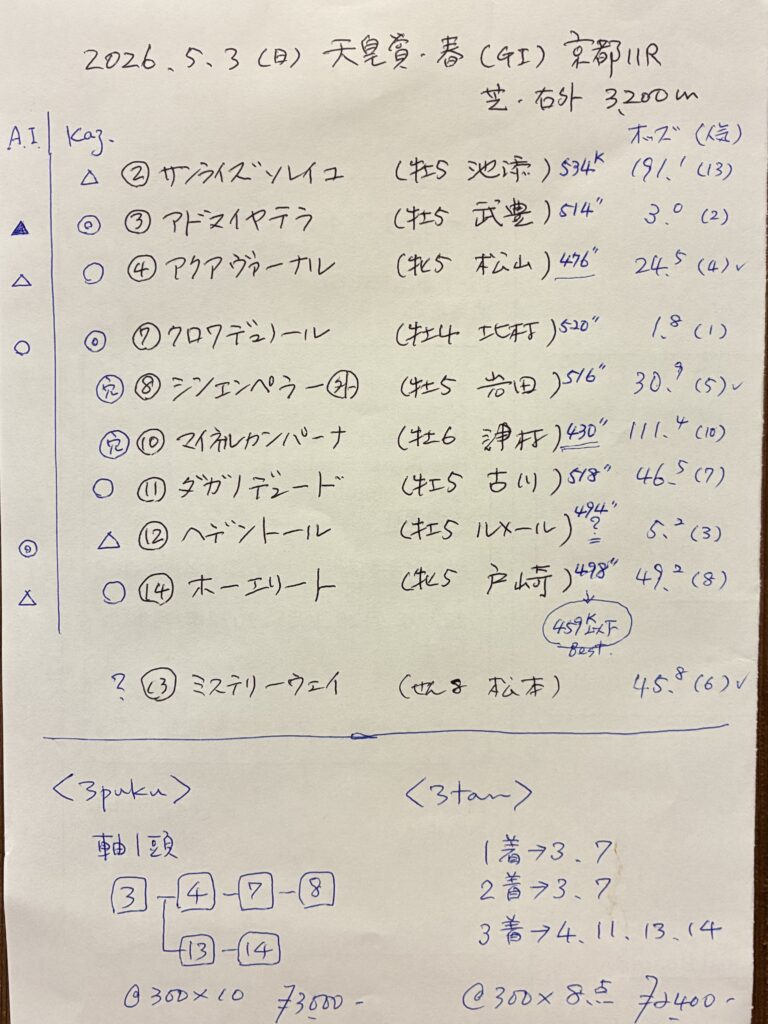 2026.5.3(日) 天皇賞・春(GI) 京都11R
芝・右外 3,200m
A.I. Kaz. オッズ (人気)
△ ② サンライズソレイユ (牡5 池添) 534K 191.1 (13)
▲ ◎ ③ アドマイヤテラ (牡5 武豊) 514〃 3.0 (2)
△ ○ ④ アクアヴァーナル (牝5 松山) 476〃 24.5 (4) ✓
○ ◎ ⑦ クロワデュノール (牡4 北村) 520〃 1.8 (1)
穴 ⑧ シンエンペラー 外 (牡5 岩田) 516〃 30.9 (5) ✓
穴 ⑩ マイネルカンパーナ (牡6 津村) 430〃 111.4 (10)
○ ⑪ ダガノデュード (牡5 古川) 518〃 46.5 (7)
◎ △ ⑫ ヘデントール (牡5 ルメール) 494〃? 5.2 (3)
△ ○ ⑭ ホーエリート (牝5 戸崎) 498〃 49.2 (8)
↓
459K以下
Best.
? ⑬ ミステリーウェイ (せん8 松本) 45.8 (6) ✓
<3puku> <3tan>
軸1頭 1着→3、7
3 4 - 7 - 8 2着→3、7
13 - 14 3着→4、11、13、14
@300×10 ¥3,000- @300×8点 ¥2,400-